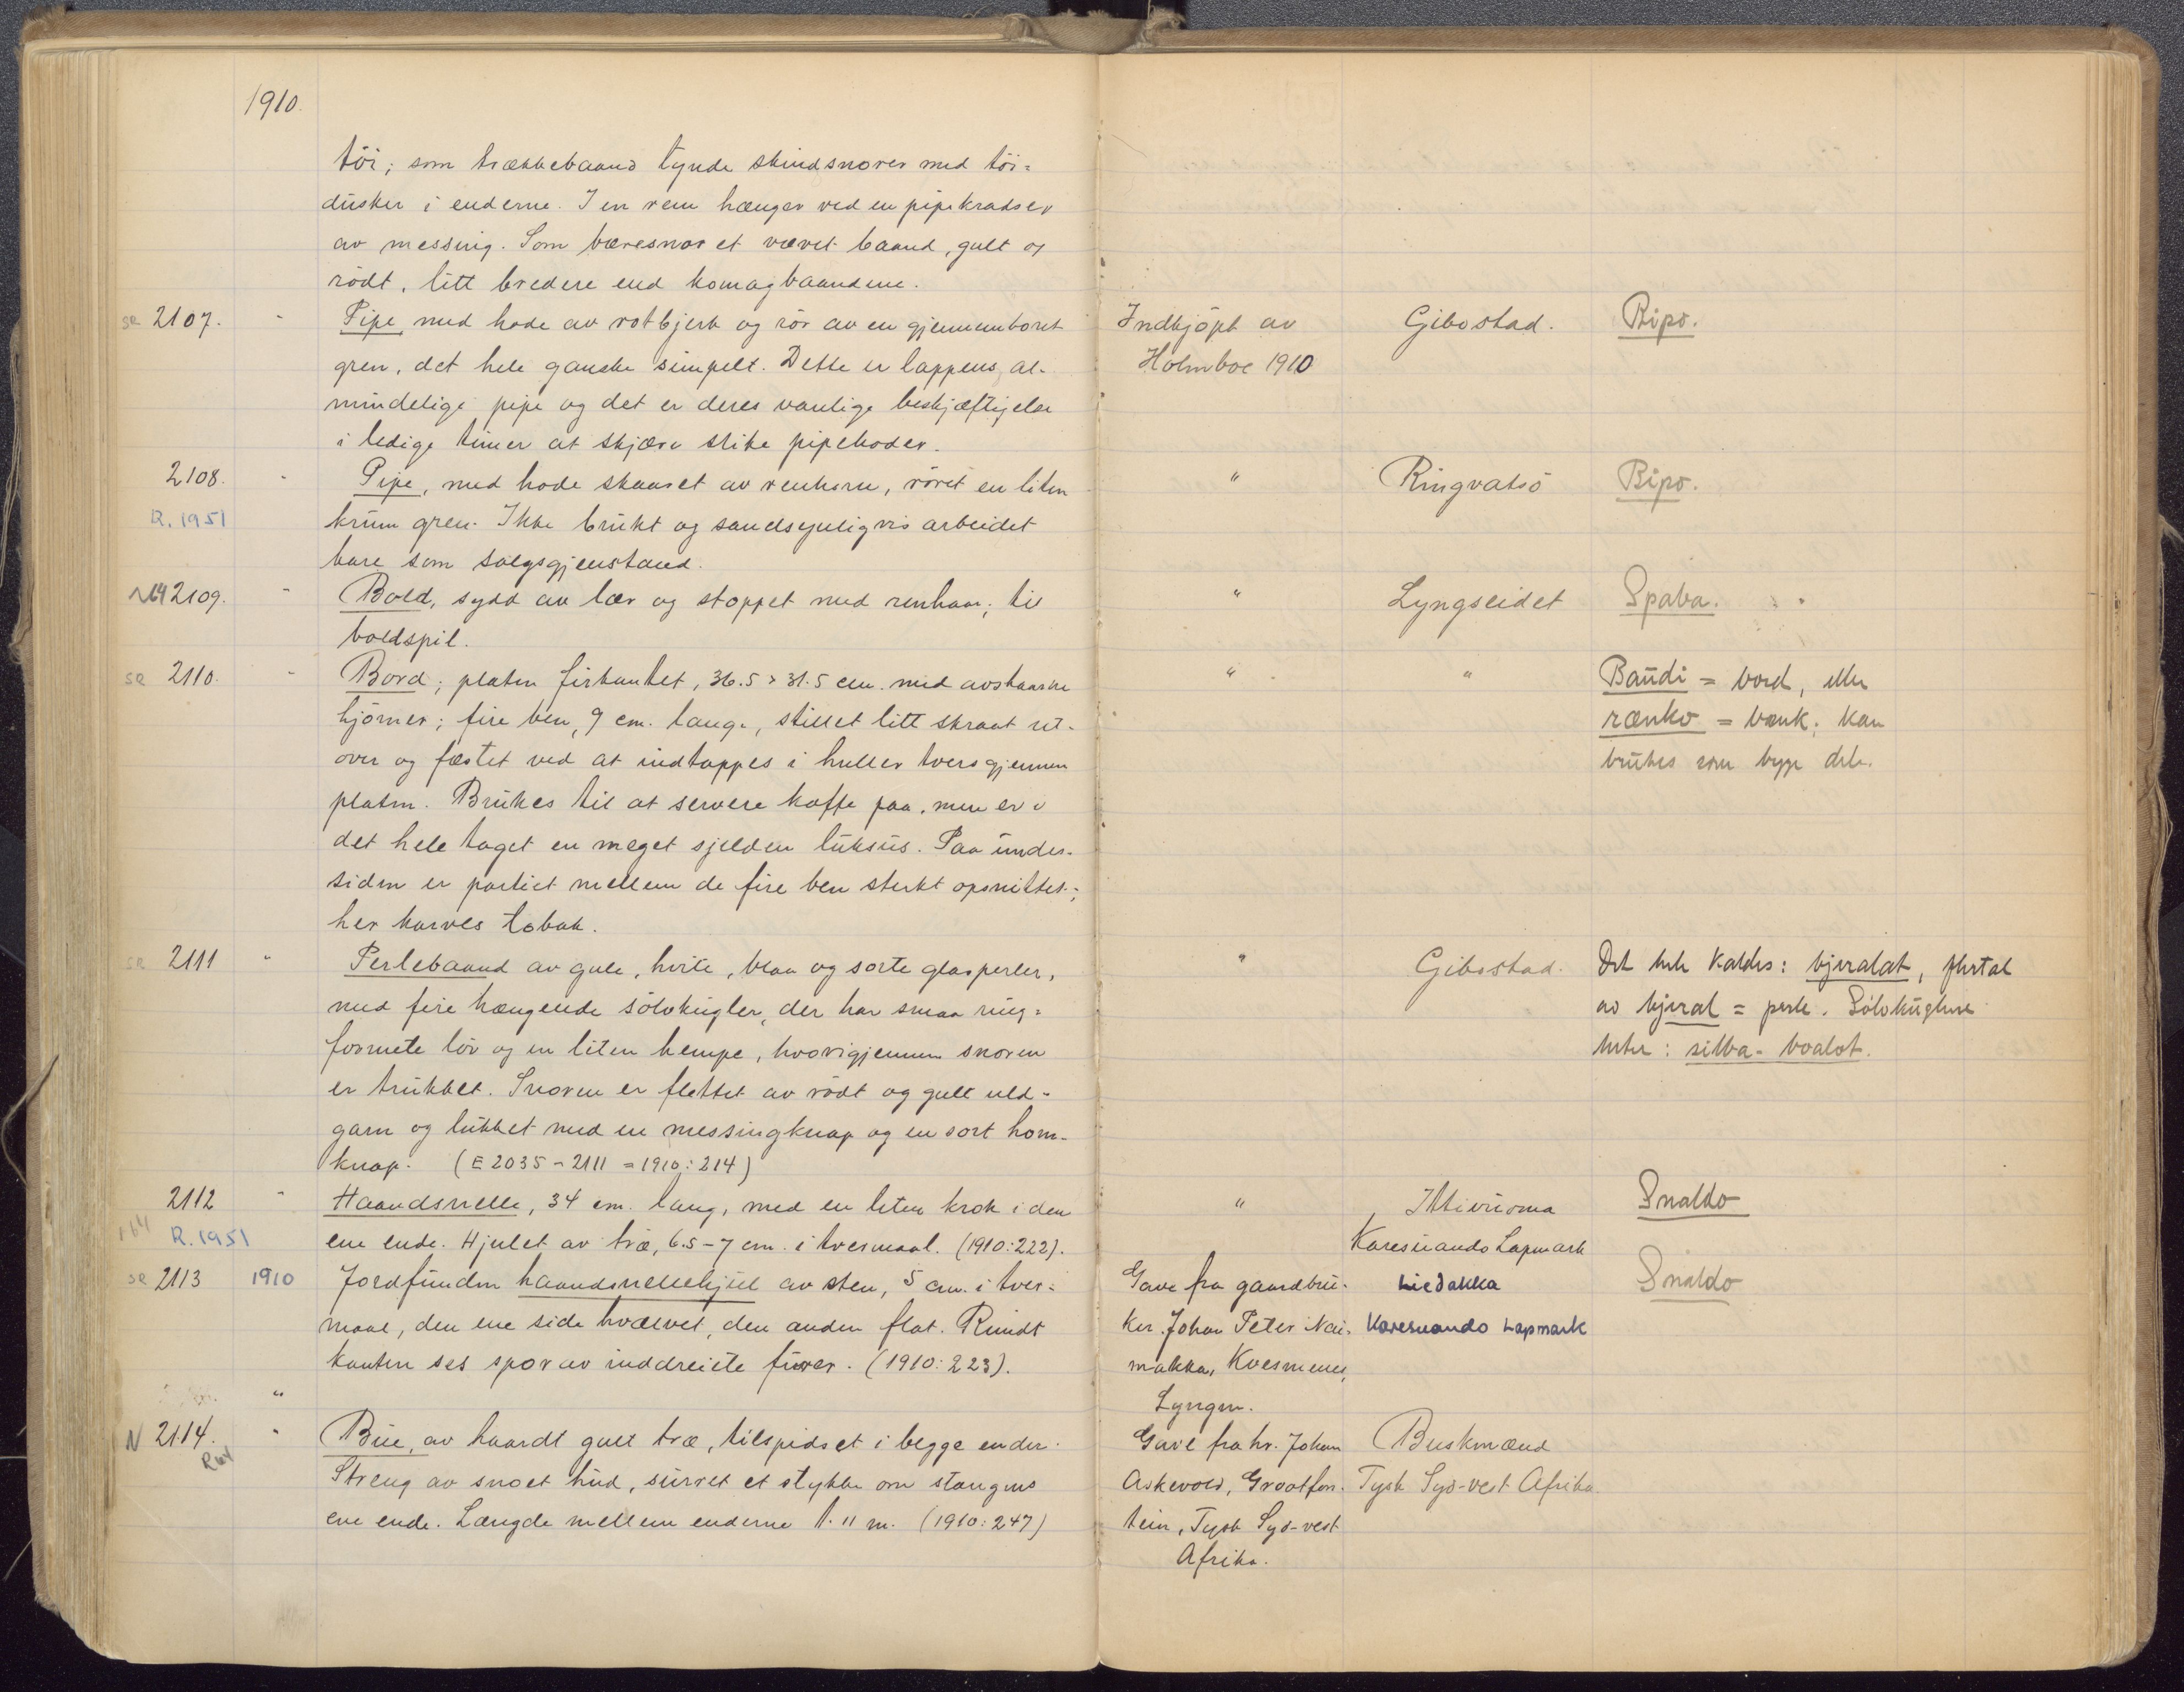 1910.
töi; som trækkebaand tynde skindsnorer med töi=
dusker i enderne. I en rem hænger ved en pipekradser
av messing. Som bæresnor et vævet baand, gult og
rödt, litt bredere end komagbaandene.
se 2107. " Pipe med hode av rotbjerk og rör av en gjennemboret Indkjöpt av Gibostad. Bipo.
gren, det hele ganske simpelt. Dette er lappens al- Holmboe 1910
mindelige pipe og det er deres vanlige beskjæftigelse
i ledige timer at skjære slike pipehoder.
2108. " Pipe, med hode skaaret av renhorn, röret en liten " Ringvatsö Bipo.
R. 1951 krum gren. Ikke brukt og sandsynligvis arbeidet
bare som salgsgjenstand.
2109. " Bold, sydd av lær og stoppet med renhaar; til " Lyngseidet Spaba.
boldspil.
se 2110. " Bord; platen firkantet, 36.5 x 31.5 cm. med avskaarne " " Baudi = bord, eller
hjörner; fire ben, 9 cm. lange, stillet litt skraat ut- rænko = bænk; kan
over og fæstet ved at indtappes i huller tvers gjennem brukes som bygge dele.
platen. Brukes til at servere kaffe paa, men er i
det hele taget en meget sjelden luksus. Paa under-
siden er partiet mellem de fire ben sterkt opsnittet;
her karves tobak.
se 2111 " Perlebaand av gule, hvite, blaa og sorte glasperler, " Gibostad. Det hele kaldes: bjeralat, flertal
med fire hængende sölvkugler, der har smaa ring= av bjeral = perle. Sölvkuglene
formete löv og en liten hempe, hvorigjennem snoren heter: silba-boalot.
er trukket. Snoren er flettet av rödt og gult uld-
garn og lukket med en messingknap og en sort horn-
knap. (E 2035 - 2111 = 1910: 214)
2112 " Haandsnelle, 34 cm. lang, med en liten krok i den " Ittivuoma Snaldo
R. 1951 ene ende. Hjulet av træ, 6.5 - 7 cm. i tvermaal. (1910: 222). Karesuando Lapmark
se 2113 1910 Jordfunden haandsnellehjul av sten, 5 cm. i tver= Gave fra gaardbru- Liedakka Snaldo
maal, den ene side hvælvet, den anden flat. Rundt ker Johan Peter Nai- Karesuando Lapmark
kanten ses spor av inddreiete furer. (1910: 223). makka, Kvesmenes,
" Lyngen.
N 2114. " Bue, av haardt gult træ, tilspidset i begge ender. Gave fra hr. Johan Buskmænd
R64 Streng av snoet hud, surret et stykke om stangens Askevold, Grootfon- Tysk Syd-vest Afrika.
ene ende. Længde mellem enderne 1.11 m. (1910: 247) tein, Tysk Syd-vest
Afrika.